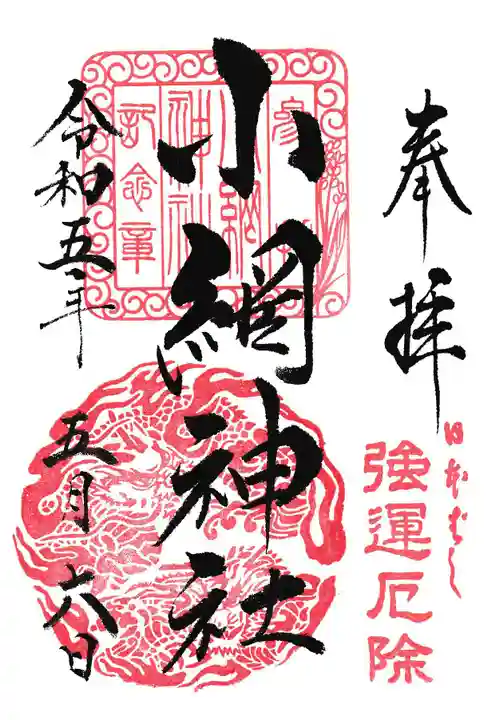 奉拝
日本ばし
強運厄除
小網神社
参拝
小網
神社
記念章
令和五年
五月六日